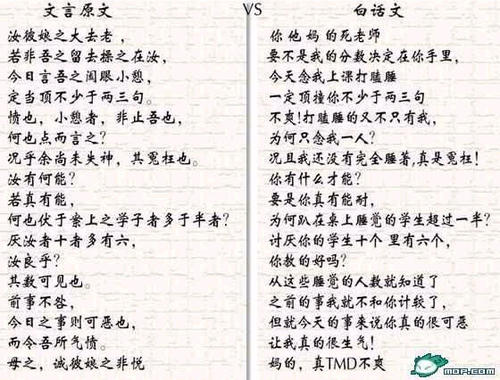 文言原文 VS 白话文
汝彼娘之大去老，
若非吾之留去操之在汝，
今日言吾之阖眼小憩，
定当顶不少于两三句。
愤也，小憩者，非止吾也，
何也点而言之？
况乎余尚未失神，其冤枉也。
汝有何能？
若真有能，
何也伏于案上之学子者多于半者？
厌汝者十者多有六，
汝良乎？
其数可见也。
前事不咎，
今日之事则可恶也，
而令吾所气愤。
母之，诚彼娘之非悦
你他妈的死老师
要不是我的分数决定在你手里，
今天念我上课打瞌睡
一定顶撞你不少于两三句
不爽！打瞌睡的又不只有我，
为何只念我一人？
况且我还没有完全睡著，真是冤枉！
你有什么才能？
要是你真有能耐，
为何趴在桌上睡觉的学生超过一半？
讨厌你的学生十个 里有六个，
你教的好吗？
从这些睡觉的人数就知道了
之前的事我就不和你计较了，
但就今天的事来说你真的很可恶
让我真的很生气！
妈的，真TMD不爽
MOP.COM